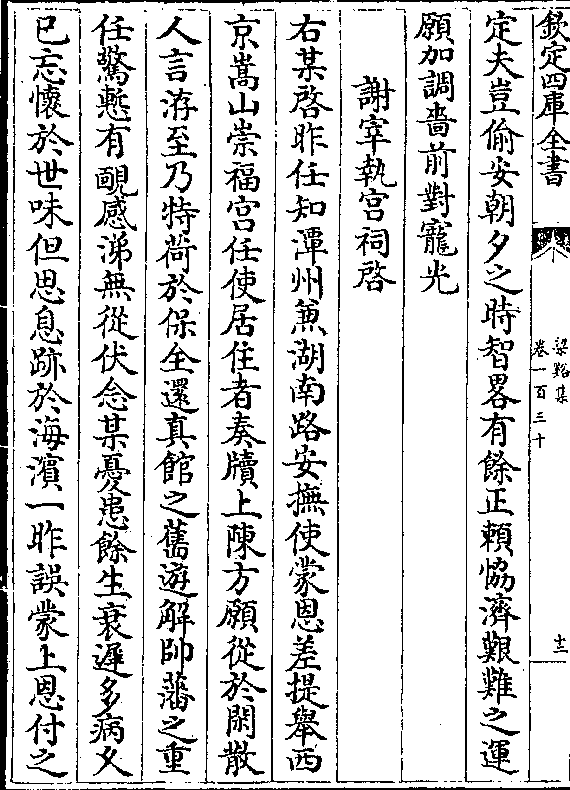 欽定四庫全書
梁谿集
卷一百三十
十二
定夫豈偷安朝夕之時智畧有餘正頼恊濟艱難之運
願加調嗇前對寵光
謝宰執宫祠啓
右某啓昨任知潭州兼湖南路安撫使蒙恩差提舉西
京嵩山崇福宫任使居住者奏牘上陳方願從於閑散
人言洊至乃特荷於保全還真館之舊遊解帥藩之重
任驚慙有靦感涕無從伏念某憂患餘生衰遲多病久
已忘懷於世味但思息跡於海濱一昨誤蒙上恩付之